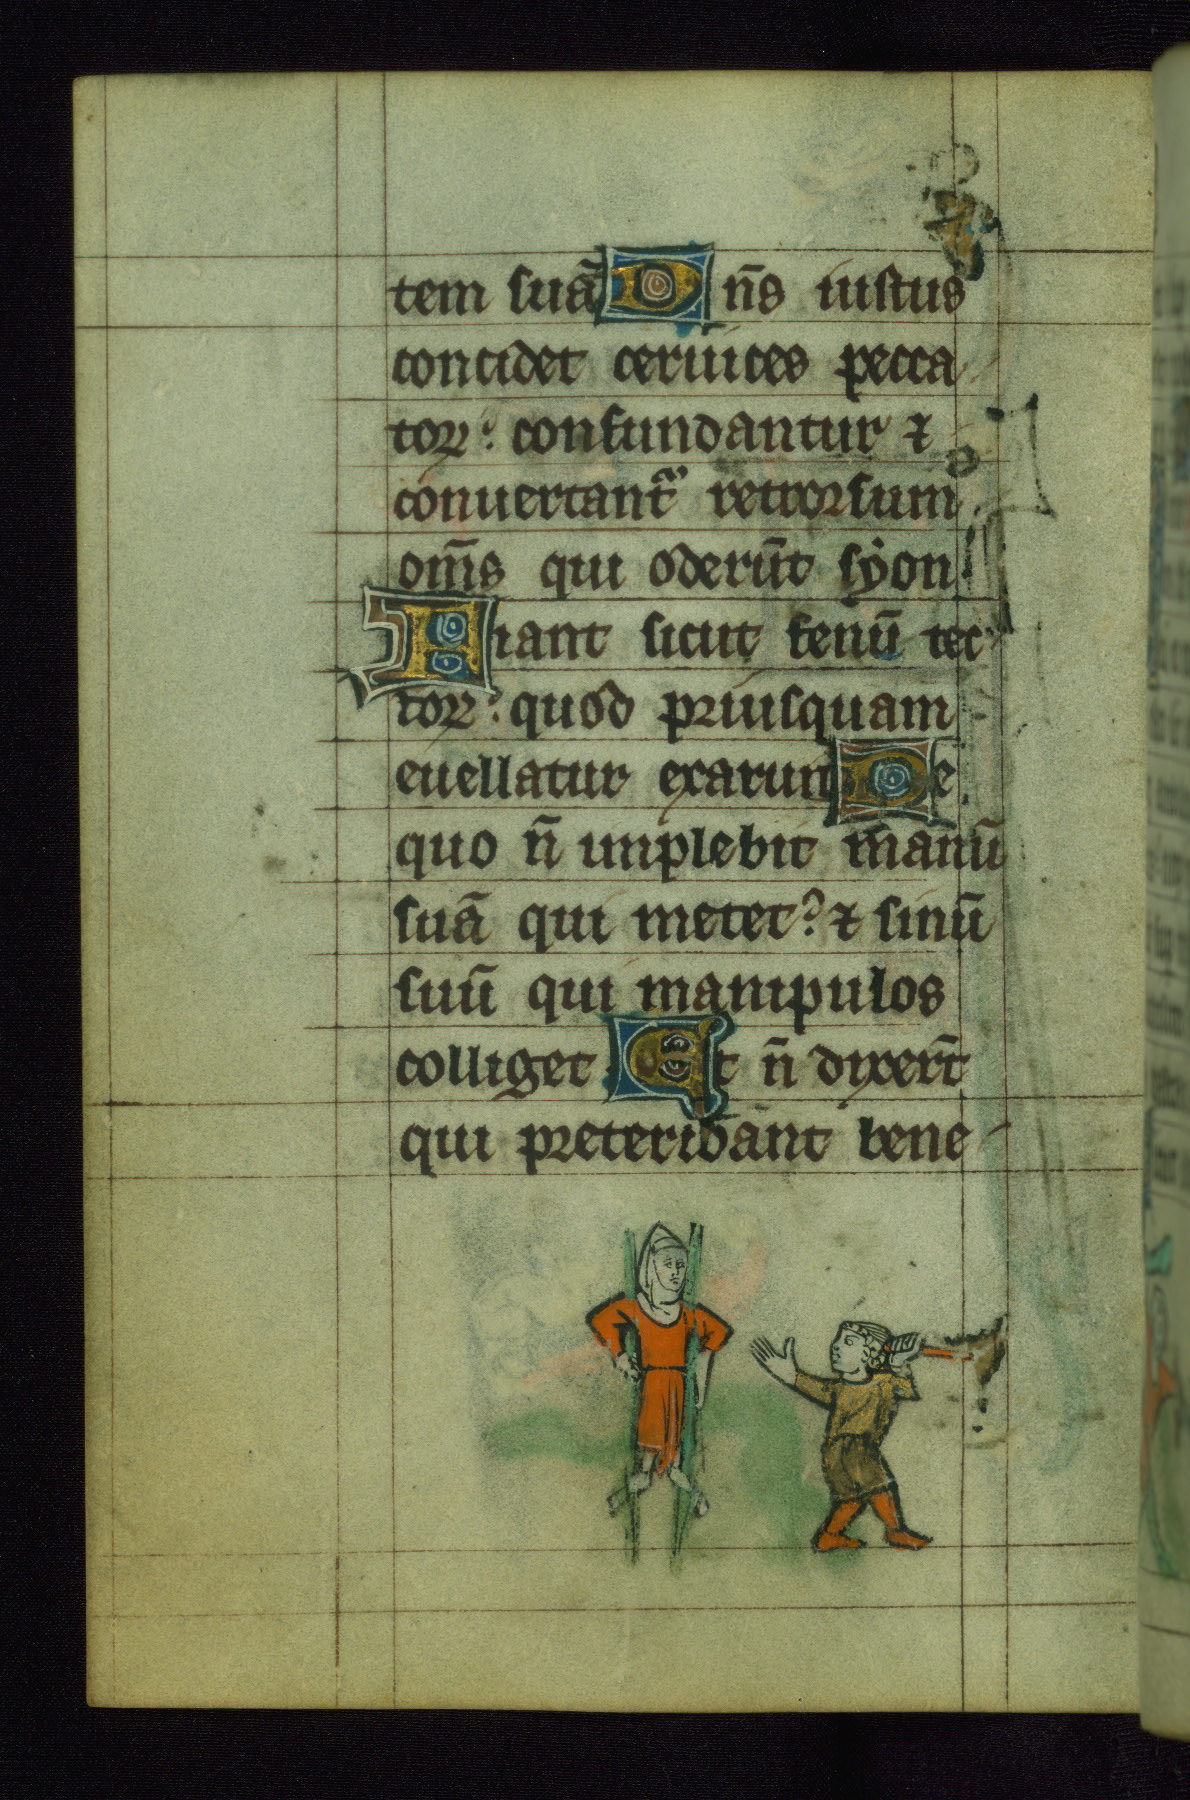 tem suā Dn̄s iustus
concidet ceruices pecca
toꝝ: confundantur ⁊
conuertant᷑ retrorsum
om̄s qui oderūt syon.
Fiant sicut fenū tec
toꝝ: quod priusquam
euellatur exarum De
quo n̄ implebit manū
suā qui metet? ⁊ sinū
suū qui manipulos
colliget. Et n̄ dixer̄t
qui preteribant bene